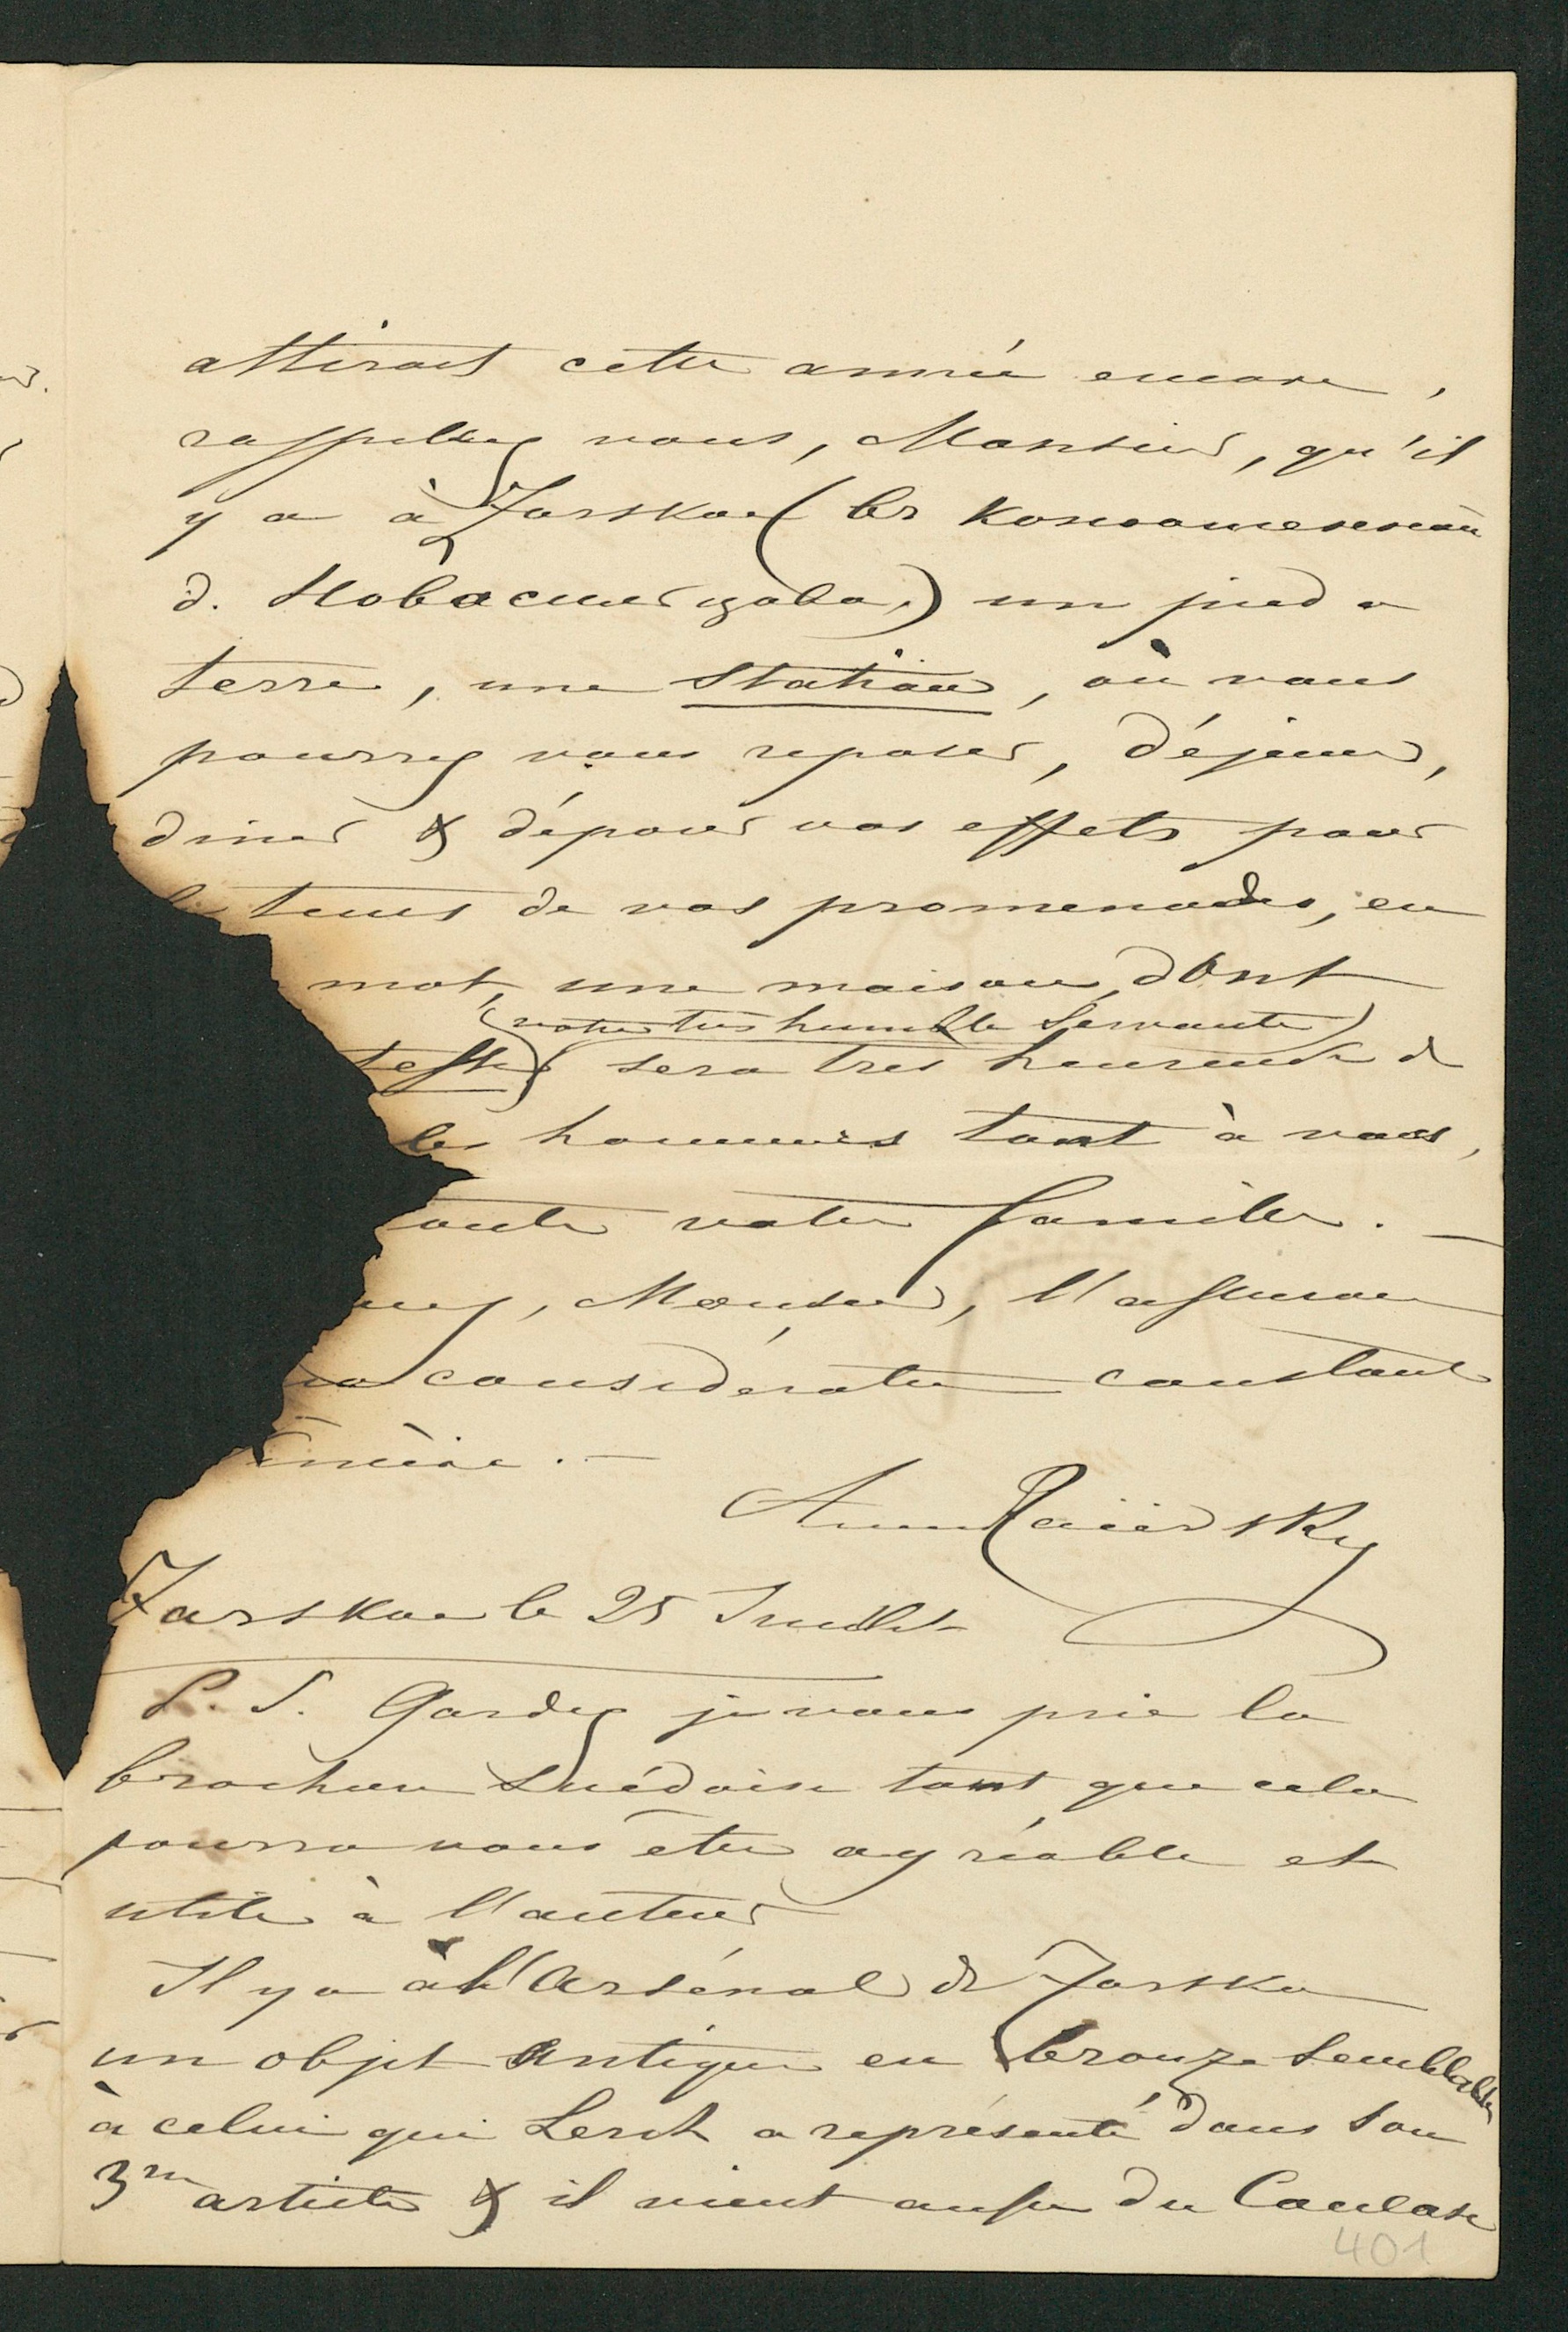 attirait cette année encore,
rappellez vous, Monsieur, qu'il
y a à Zarskoe (въ
д. Новасильцова) un pied a
terre, une station, où vous
pourrez vous reposer, déjeuner,
diner & déposer vos effets pour
le tems de vos promenades, en
mot, une maison, dont
(votre très humble Servante)
tesse sera très heureuse de
les honneurs tant à vous,
oute votre famille. —
uez, Monsieur, l'assurance
ma considération constante
. —
Anna Raiievsky
Zarskoe le 25 Juillet
P. S. Gardez je vous prie la
brochure Suédoise tant que cela
pourra vous être agréable et
utile à l'auteur
Il y a à l'Arsénal de Zarskoe
un objet antique en bronze semblable
à celui que Lerch a représenté dans son
3me article & il vient aussi du Caucase
401